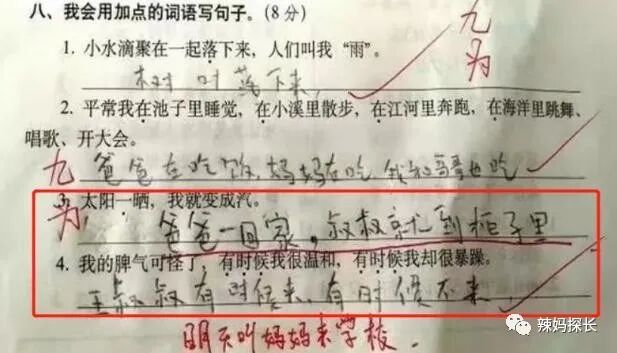 八、我会用加点的词语写句子。(8分)
1. 小水滴聚在一起落下来，人们叫我“雨”。
树叶落下来
2. 平常我在池子里睡觉，在小溪里散步，在江河里奔跑，在海洋里跳舞、
唱歌、开大会。
爸爸在吃饭，妈妈在吃 我和哥哥也吃
3. 太阳一晒，我就变成汽。
爸爸一回家，叔叔就到柜子里
4. 我的脾气可怪了，有时候我很温和，有时候我却很暴躁。
王叔叔有时候来，有时候不来
明天叫妈妈来学校.
辣妈探长